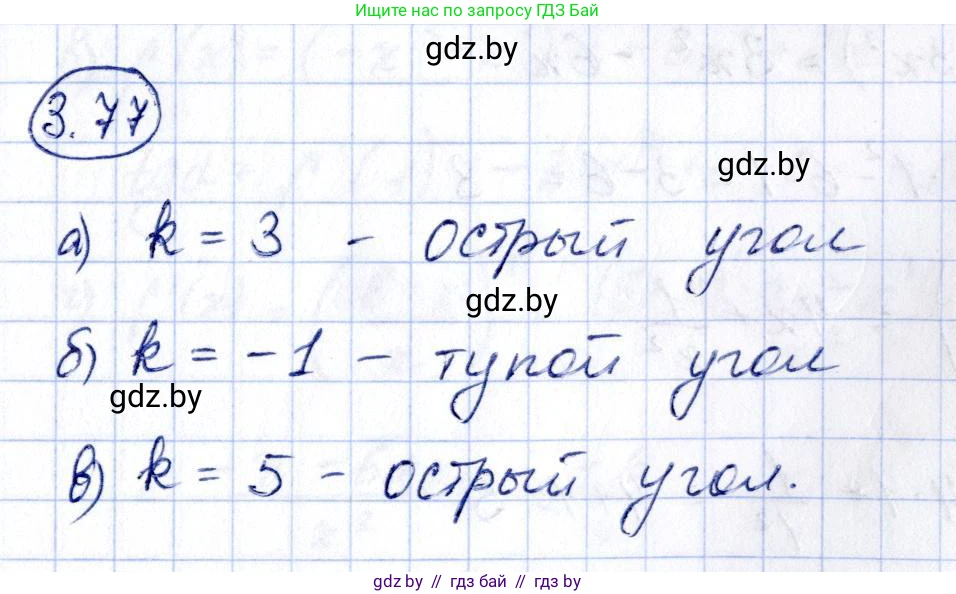 Ищите нас по запросу ГДЗ Бай
gdz.by
3.77
gdz.by
а) k = 3 - острый угол
gdz.by
б) k = -1 - тупой угол
gdz.by
в) k = 5 - острый угол.
gdz.by // гдз бай // гдз by